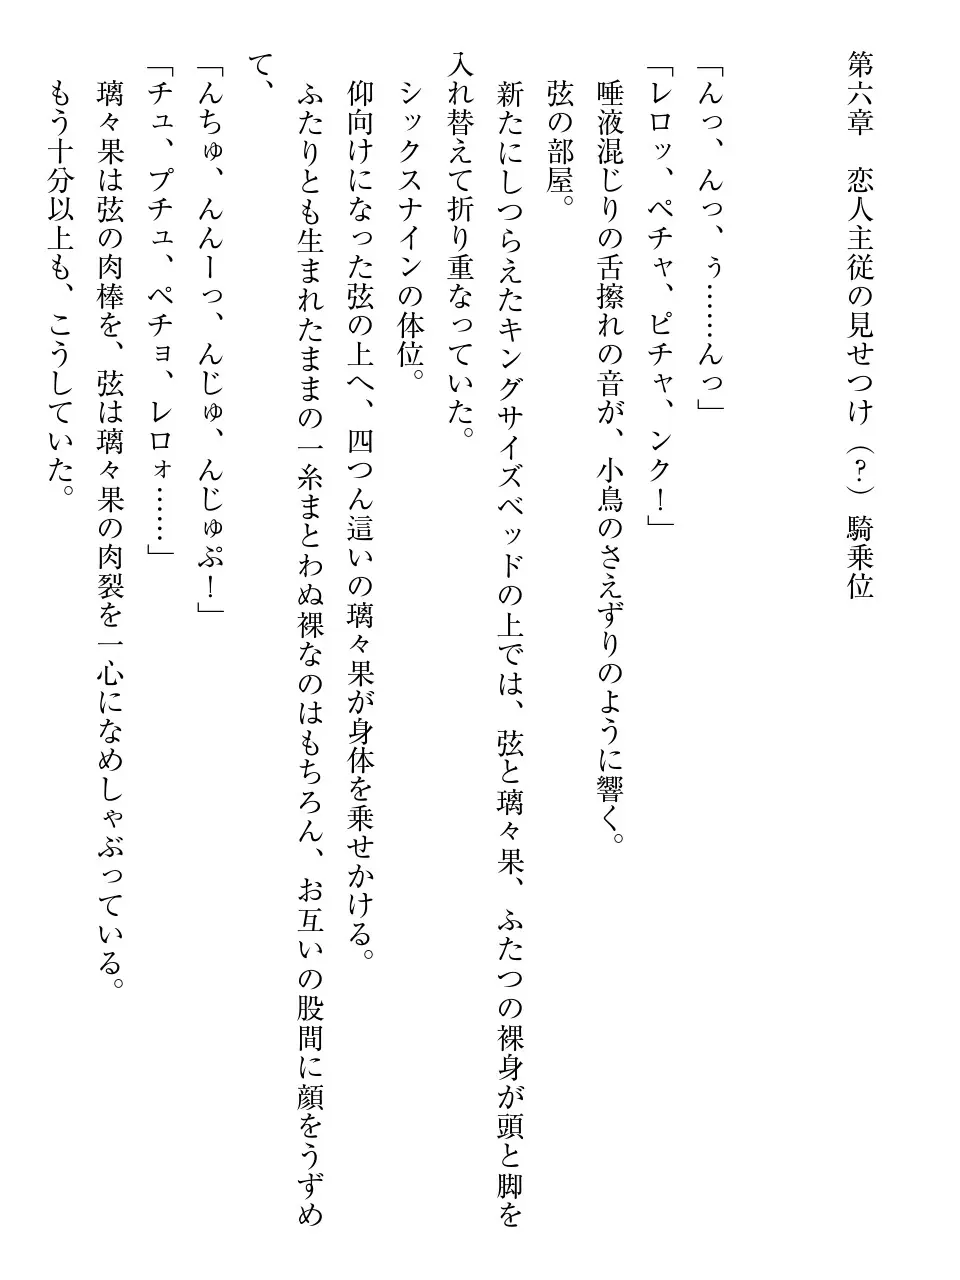 第六章　恋人主従の見せつけ（？）騎乗位
「んっ、んっ、ぅ……んっ」
「レロッ、ペチャ、ピチャ、ンク！」
唾液混じりの舌擦れの音が、小鳥のさえずりのように響く。
弦の部屋。
新たにしつらえたキングサイズベッドの上では、弦と璃々果、ふたつの裸身が頭と脚を
入れ替えて折り重なっていた。
シックスナインの体位。
仰向けになった弦の上へ、四つん這いの璃々果が身体を乗せかける。
ふたりとも生まれたままの一糸まとわぬ裸なのはもちろん、お互いの股間に顔をうずめ
て、
「んちゅ、んんーっ、んじゅ、んじゅぷ！」
「チュ、プチュ、ペチョ、レロォ……」
璃々果は弦の肉棒を、弦は璃々果の肉裂を一心になめしゃぶっている。
もう十分以上も、こうしていた。